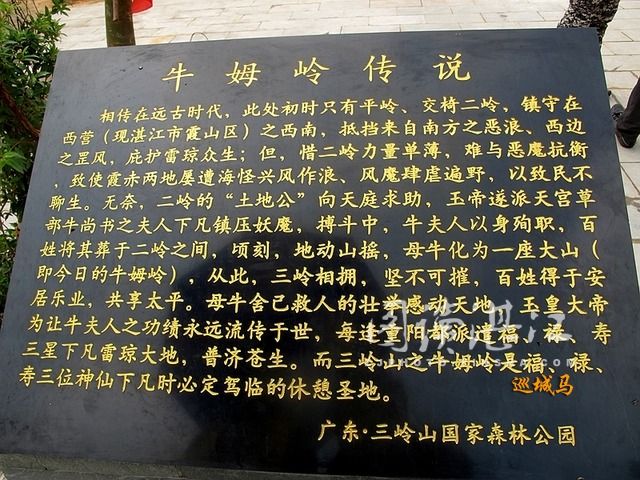 牛姆岭传说
相传在远古时代，此处初时只有平岭、交椅二岭，镇守在
西营（现湛江市霞山区）之西南，抵挡来自南方之恶浪、西边
之罡风，庇护雷琼众生；但，惜二岭力量单薄，难与恶魔抗衡
，致使霞赤两地屡遭海怪兴风作浪、风魔肆虐遍野，以致民不
聊生。无奈，二岭的“土地公”向天庭求助，玉帝遂派天宫草
部牛尚书之夫人下凡镇压妖魔，搏斗中，牛夫人以身殉职，百
姓将其葬于二岭之间，顷刻，地动山摇，母牛化为一座大山（
即今日的牛姆岭），从此，三岭相拥，坚不可摧，百姓得于安
居乐业，共享太平。母牛舍己救人的壮举感动天地，玉皇大帝
为让牛夫人之功绩永远流传于世，每逢重阳都派遣福、禄、寿
三星下凡雷琼大地，普济苍生。而三岭山之牛姆岭是福、禄、
寿三位神仙下凡时必定驾临的休憩圣地。
巡城马
广东·三岭山国家森林公园